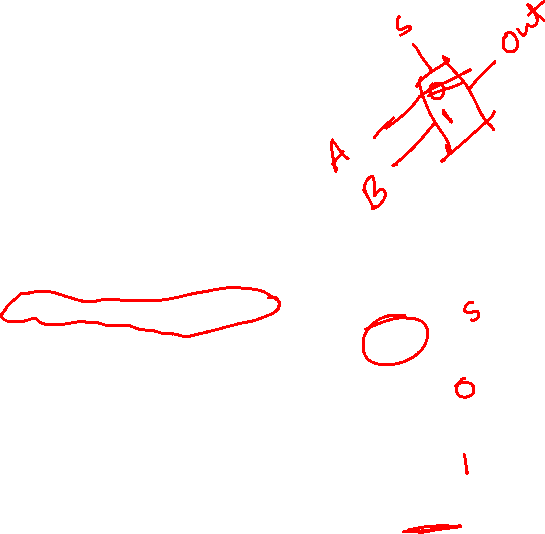 S
Out
0
1
A
B
S
0
1